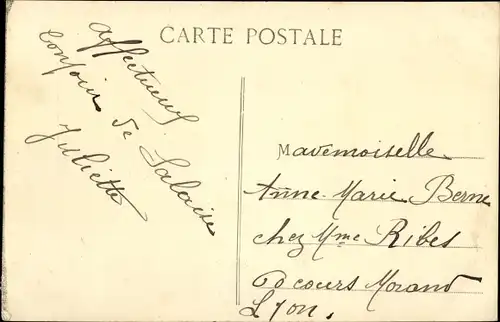 CARTE POSTALE
Affectueux
bonjour
de Salaise
Juliette
Mademoiselle
Anne-Marie Berne
chez Mme Ribes
cours Morand
Lyon.